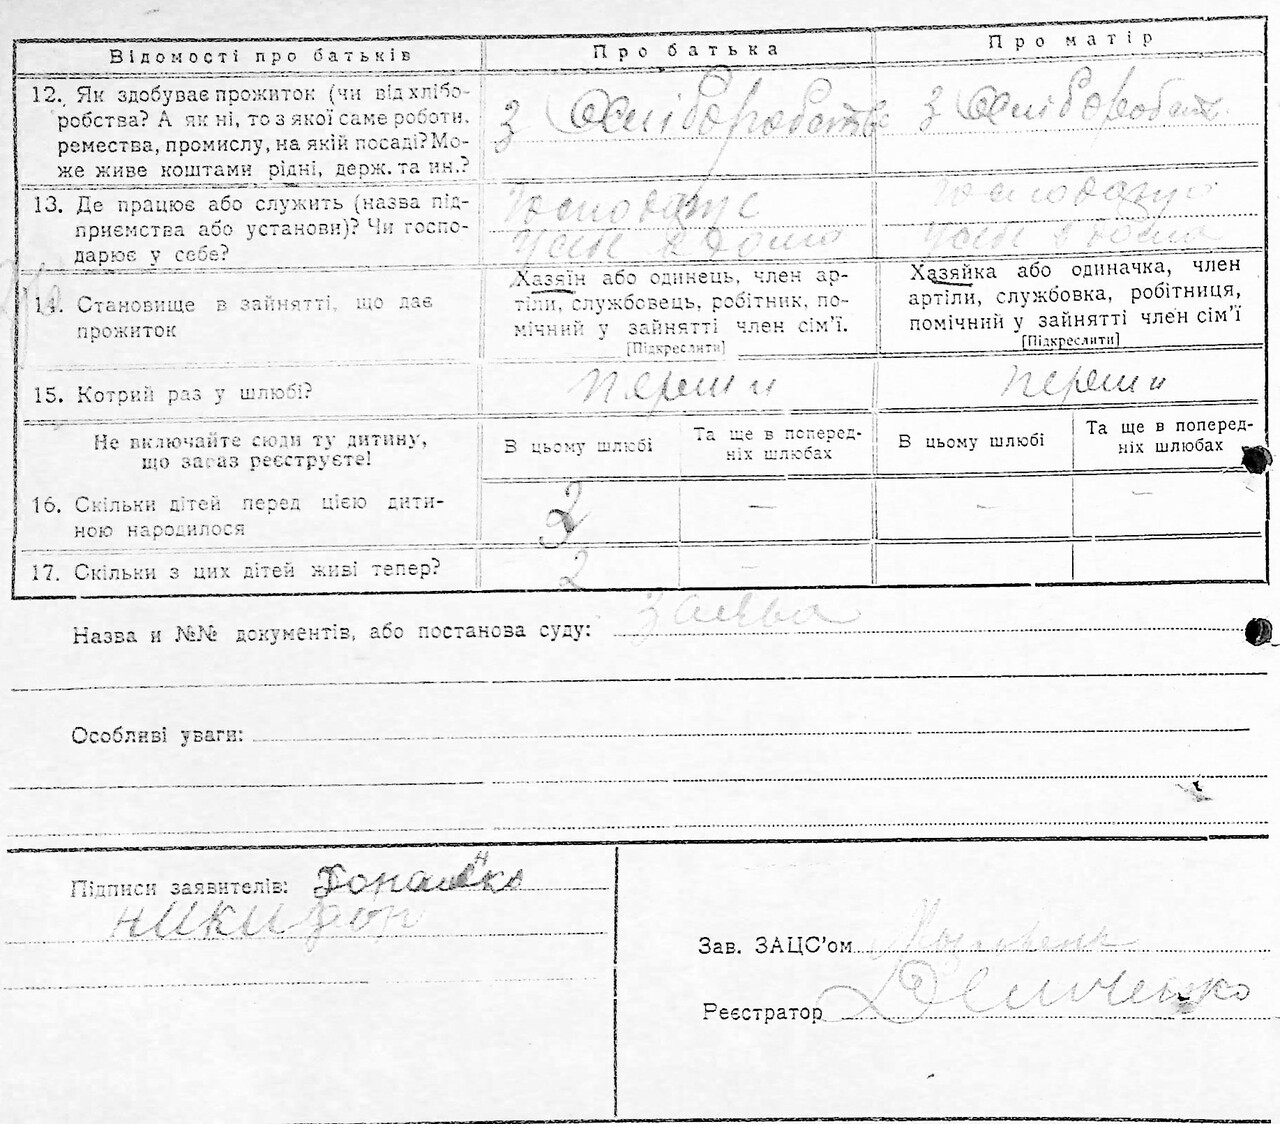 Відомості про батьків Про батька Про матір
12. Як здобуває прожиток (чи від хлібо-
робства? А як ні, то з якої саме роботи,
ремества, промислу, на якій посаді? Мо-
же живе коштами рідні, держ. та ин.?
З Хліборобства З Хлібороб
13. Де працює або служить (назва під-
приємства або установи)? Чи госпо-
дарює у себе?
Господарує
у себе в дома
Господарує
у себе в дома
14. Становище в зайнятті, що дає
прожиток
Хазяїн або одинець, член ар-
тіли, службовець, робітник, по-
мічний у зайнятті член сім'ї.
[Підкреслити]
Хазяйка або одиначка, член
артіли, службовка, робітниця,
помічний у зайнятті член сім'ї
[Підкреслити]
15. Котрий раз у шлюбі? перши перши
Не включайте сюди ту дитину,
що зараз реєструєте!
В цьому шлюбі
Та ще в поперед-
ніх шлюбах
В цьому шлюбі
Та ще в поперед-
ніх шлюбах
16. Скільки дітей перед цією дити-
ною народилося
2 – – –
17. Скільки з цих дітей живі тепер? 2 –
Назва и №№ документів, або постанова суду: заява
Особливі уваги:
Підписи заявителів:
никифор
Зав. ЗАЦС'ом
Реєстратор Демченко